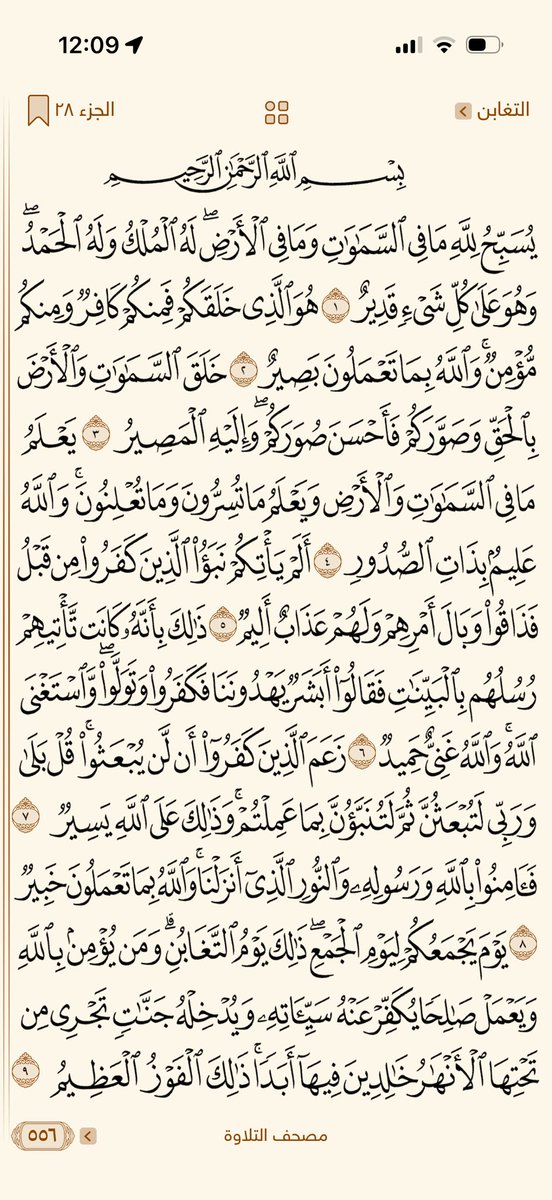 12:09
التغابن
الجزء ٢٨
بِسْمِ ٱللَّهِ ٱلرَّحْمَٰنِ ٱلرَّحِيمِ
يُسَبِّحُ لِلَّهِ مَا فِى ٱلسَّمَٰوَٰتِ وَمَا فِى ٱلْأَرْضِۖ لَهُ ٱلْمُلْكُ وَلَهُ ٱلْحَمْدُۖ
وَهُوَ عَلَىٰ كُلِّ شَىْءٍ قَدِيرٌ ١ هُوَ ٱلَّذِى خَلَقَكُمْ فَمِنكُمْ كَافِرٌ وَمِنكُم
مُّؤْمِنٌۚ وَٱللَّهُ بِمَا تَعْمَلُونَ بَصِيرٌ ٢ خَلَقَ ٱلسَّمَٰوَٰتِ وَٱلْأَرْضَ
بِٱلْحَقِّ وَصَوَّرَكُمْ فَأَحْسَنَ صُوَرَكُمْۖ وَإِلَيْهِ ٱلْمَصِيرُ ٣ يَعْلَمُ
مَا فِى ٱلسَّمَٰوَٰتِ وَٱلْأَرْضِ وَيَعْلَمُ مَا تُسِرُّونَ وَمَا تُعْلِنُونَۚ وَٱللَّهُ
عَلِيمٌۢ بِذَاتِ ٱلصُّدُورِ ٤ أَلَمْ يَأْتِكُمْ نَبَؤُا۟ ٱلَّذِينَ كَفَرُوا۟ مِن قَبْلُ
فَذَاقُوا۟ وَبَالَ أَمْرِهِمْ وَلَهُمْ عَذَابٌ أَلِيمٌ ٥ ذَٰلِكَ بِأَنَّهُۥ كَانَت تَّأْتِيهِمْ
رُسُلُهُم بِٱلْبَيِّنَٰتِ فَقَالُوٓا۟ أَبَشَرٌ يَهْدُونَنَا فَكَفَرُوا۟ وَتَوَلَّوا۟ۖ وَّٱسْتَغْنَى
ٱللَّهُۚ وَٱللَّهُ غَنِىٌّ حَمِيدٌ ٦ زَعَمَ ٱلَّذِينَ كَفَرُوٓا۟ أَن لَّن يُبْعَثُوا۟ۚ قُلْ بَلَىٰ
وَرَبِّى لَتُبْعَثُنَّ ثُمَّ لَتُنَبَّؤُنَّ بِمَا عَمِلْتُمْۚ وَذَٰلِكَ عَلَى ٱللَّهِ يَسِيرٌ ٧
فَـَٔامِنُوا۟ بِٱللَّهِ وَرَسُولِهِۦ وَٱلنُّورِ ٱلَّذِىٓ أَنزَلْنَاۚ وَٱللَّهُ بِمَا تَعْمَلُونَ خَبِيرٌ
٨ يَوْمَ يَجْمَعُكُمْ لِيَوْمِ ٱلْجَمْعِۖ ذَٰلِكَ يَوْمُ ٱلتَّغَابُنِۗ وَمَن يُؤْمِنۢ بِٱللَّهِ
وَيَعْمَلْ صَٰلِحًا يُكَفِّرْ عَنْهُ سَيِّـَٔاتِهِۦ وَيُدْخِلْهُ جَنَّٰتٍ تَجْرِى مِن
تَحْتِهَا ٱلْأَنْهَٰرُ خَٰلِدِينَ فِيهَآ أَبَدًاۚ ذَٰلِكَ ٱلْفَوْزُ ٱلْعَظِيمُ ٩
مصحف التلاوة
٥٥٦